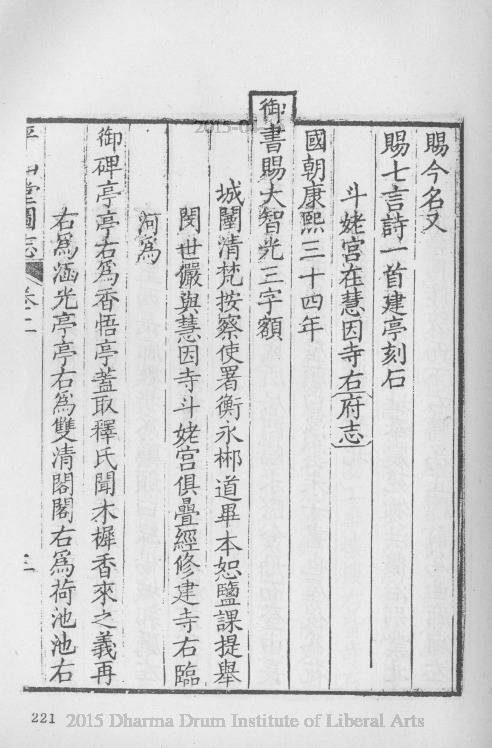 賜今名又
賜七言詩一首建亭刻石
斗姥宮在慧因寺右府志
國朝康熙三十四年
御書賜大智光三字額
城闉清梵按察使署衡永郴道畢本恕鹽課提舉
閔世儼與慧因寺斗姥宮俱疊經修建寺右臨
河為
御碑亭亭右為香悟亭蓋取釋氏聞木樨香來之義再
右為涵光亭亭右為雙清閣閣右為荷池池右
平山堂圖志 卷二
221 2015 Dharma Drum Institute of Liberal Arts